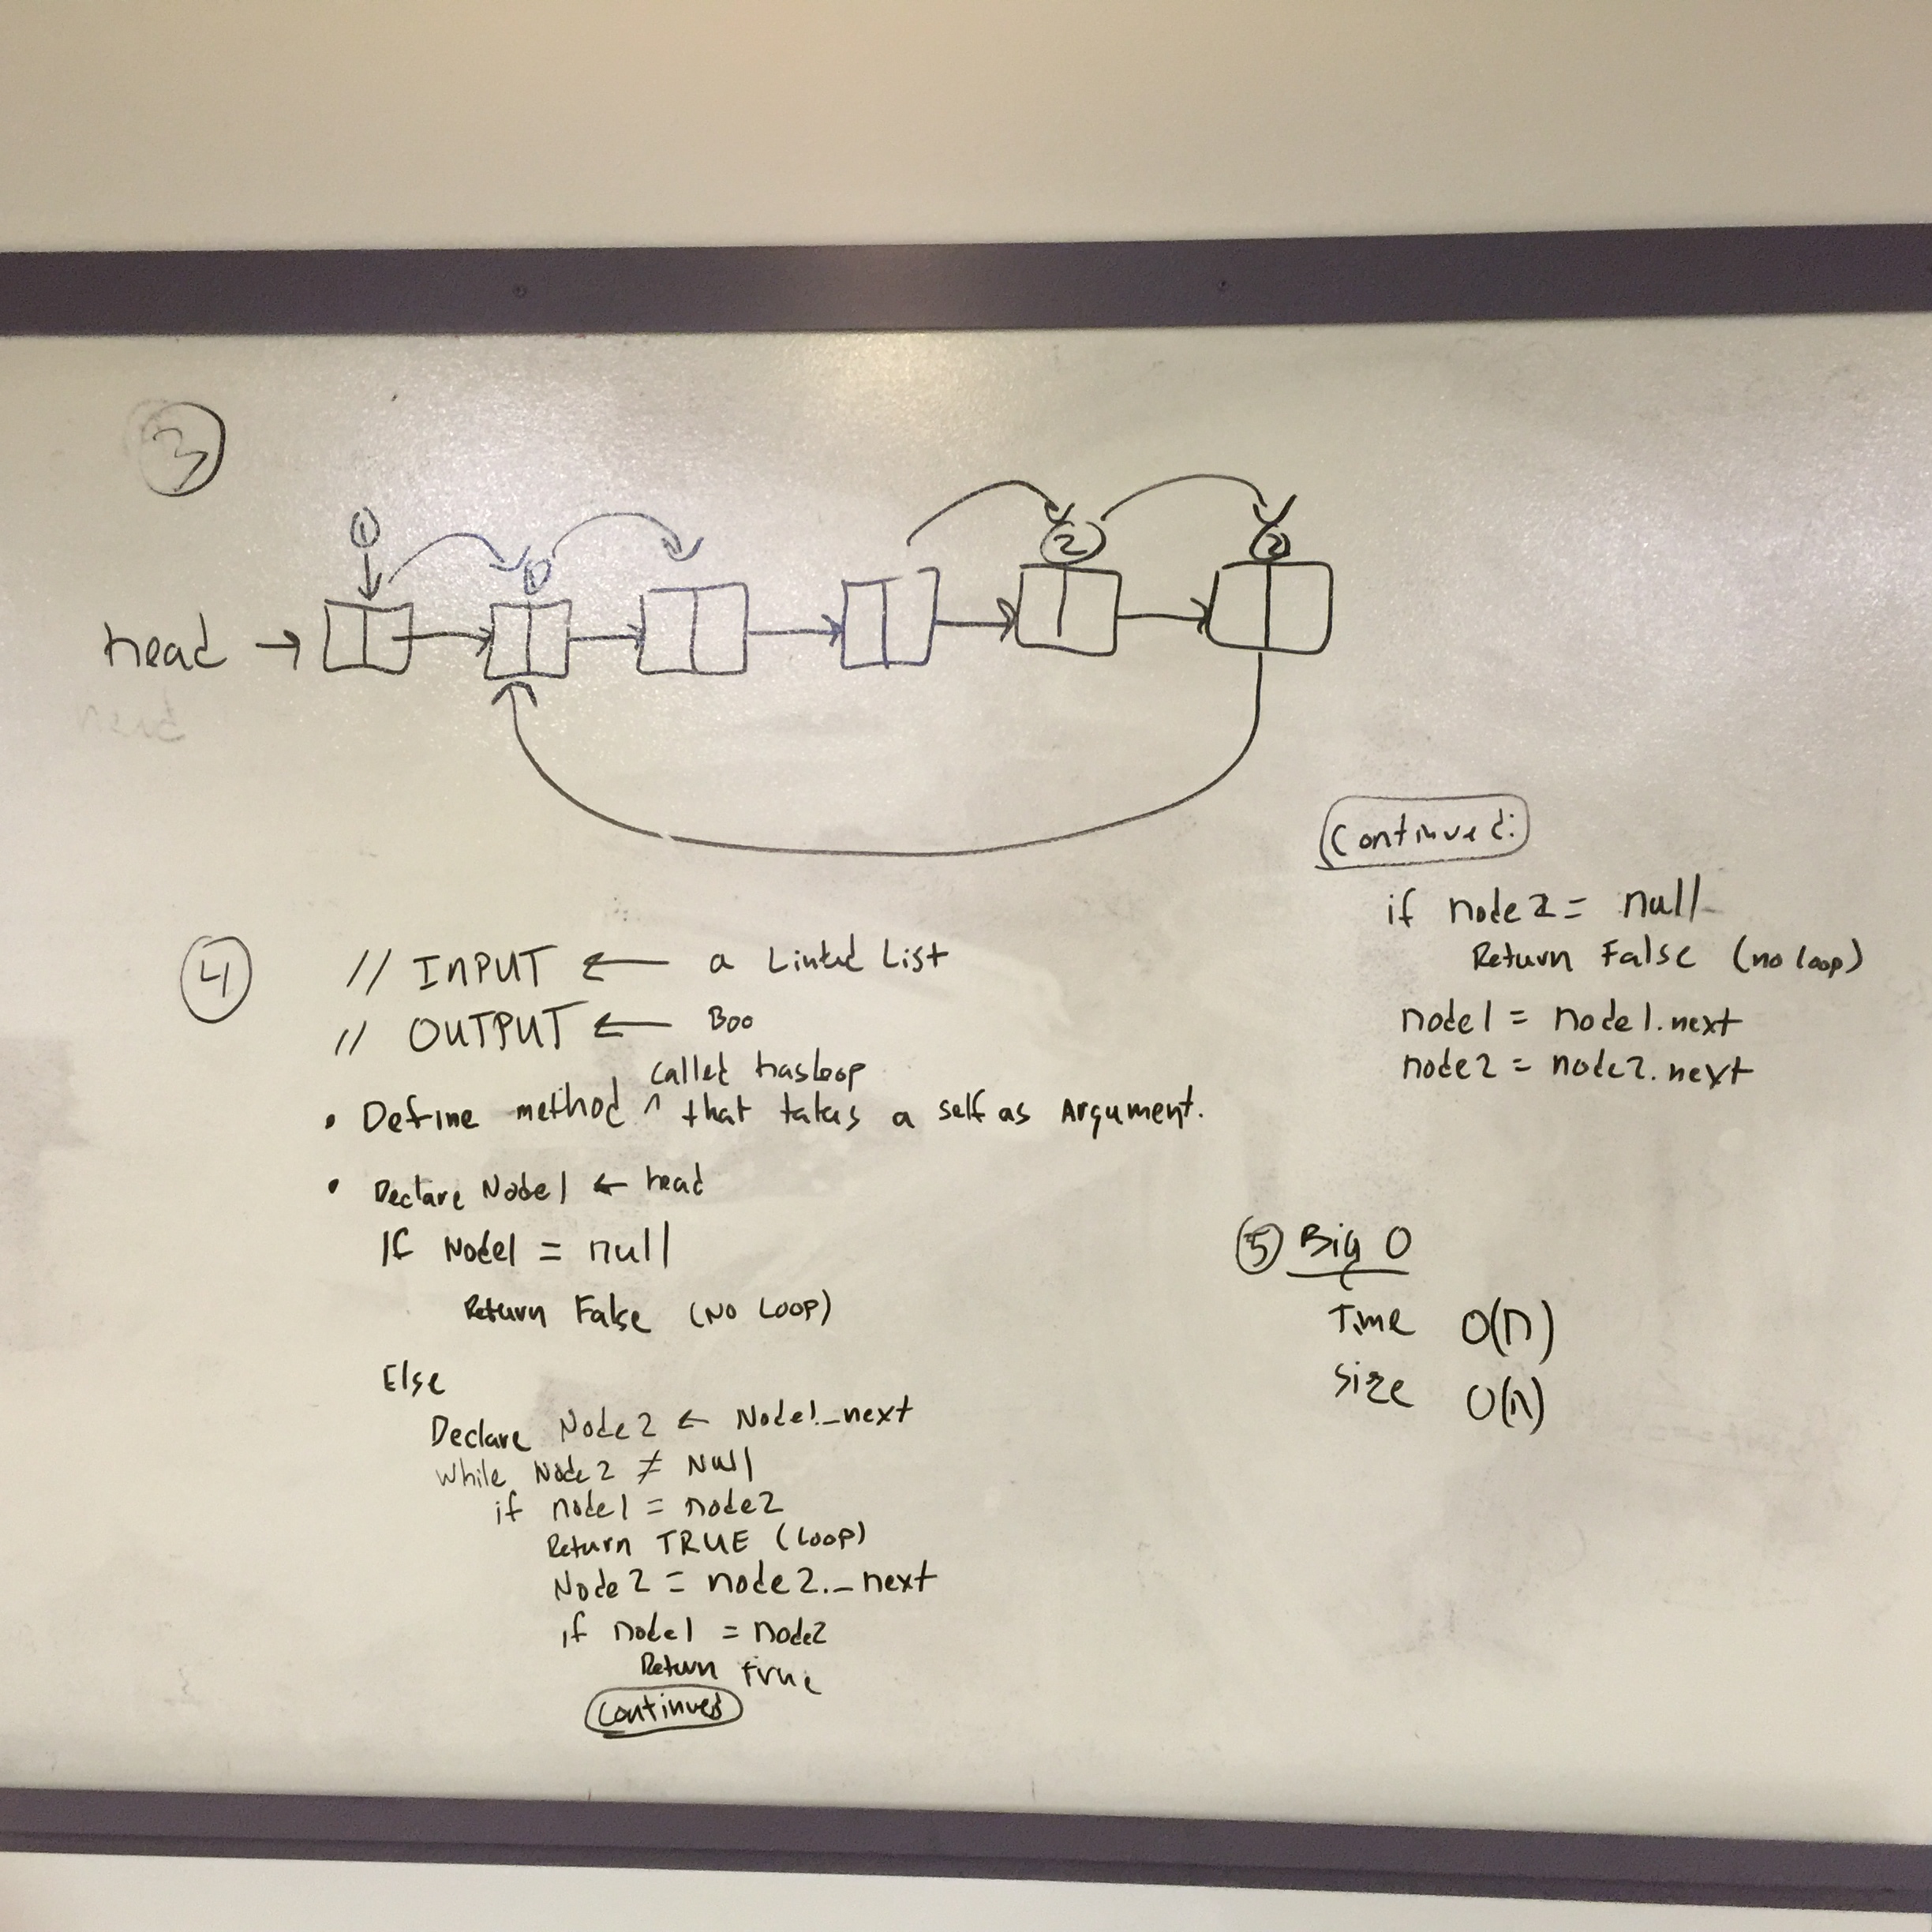 3
1
1
2
2
head →
4
// INPUT ← a Linked List
// OUTPUT ← Boo
called hasloop
• Define method ^ that takes a self as Argument.
• Declare Node1 ← head
If Node1 = null
Return False (No Loop)
Else
Declare Node2 ← Node1._next
while Node2 ≠ Null
if node1 = node2
Return TRUE (Loop)
Node2 = node2._next
if node1 = node2
Return true
Continued
Continued:
if node2 = null
Return False (no loop)
node1 = node1.next
node2 = node2.next
5 Big O
Time O(n)
Size O(n)